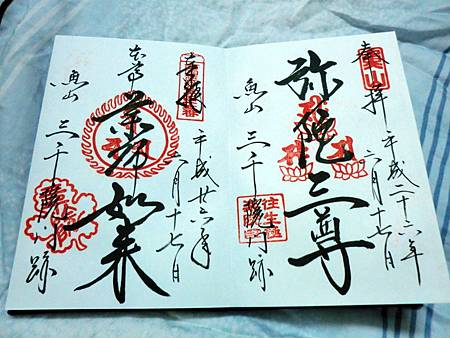 奉拝
平成二十六年
六月十七日
弥陀三尊
魚山 三千院門跡
奉拝
平成廿六年
六月十七日
本尊 薬師如来
魚山 三千院門跡